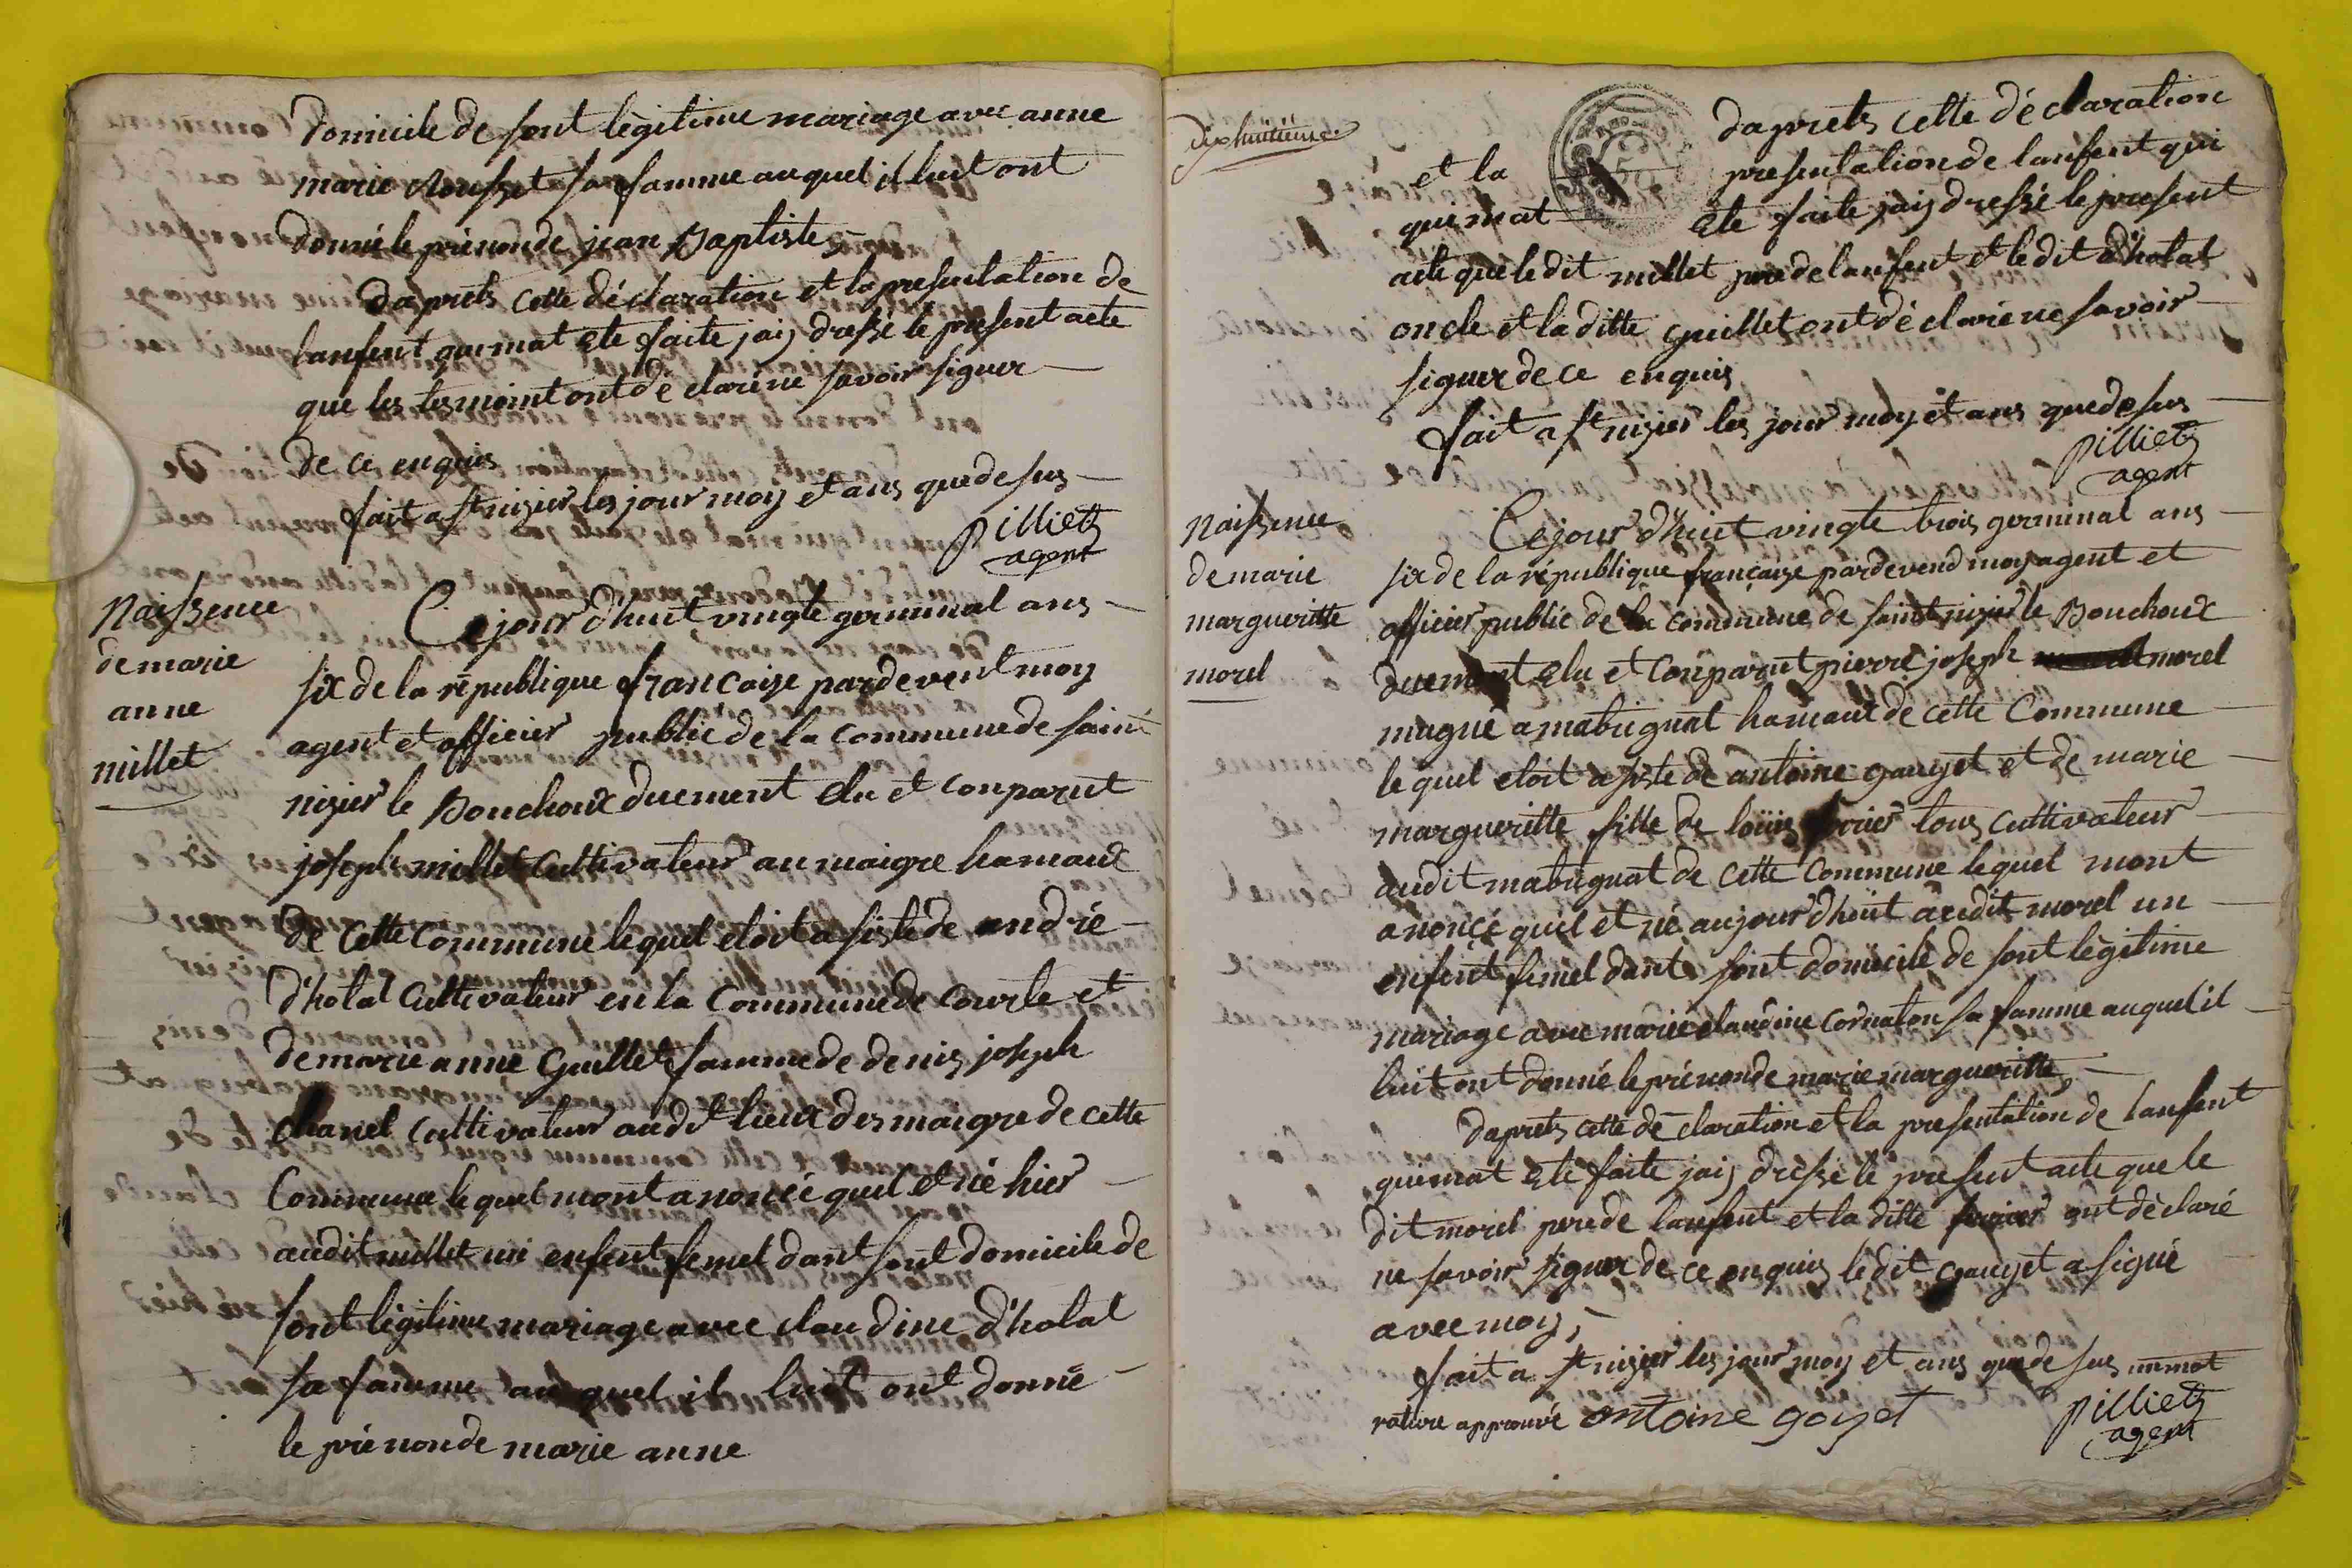 domicile de sont lègitime mariage avec anne
marie Rousset sa famme auquel il luit ont
donné le prénon de jean Baptiste
daprets cette déclaration et la presentation de
lanfent qui mat ete faite jaij dressé le present acte
que les tesmoint ont déclaré ne savoir signer
de ce enquis
fait a st nizier les jour moy et ans que desus
pilliet
agent
Naissence
de marie
anne
millet
Ce jour d'huit vingte germinal ans
six de la république françaize pardevent moy
agent et officier public de la commune de saint
nizier le Bouchoux duement elu et conparut
joseph millet cultivateur au maigre hamaux
de cette commune lequel etoit asisté de andrié
d'holat cultivateur en la commune de courle et
de marie anne Guillet famme de denis joseph
chanel cultivateur audit lieux des maigre de cette
commune lequel mont anoncé quil et né hier
audit millet un enfent femel dant sont domicile de
sont lègitime mariage avec claudine d'holat
sa famme auquel il luit ont donné
le prénon de marie anne
dixhuitiéme
daprets cette déclaration
et la presentation de lanfent qui
qui mat ete faite jaij dressé le present
acte que le dit millet pere de lanfent et le dit d'holat
oncle et la ditte guillet ont déclaré ne savoir
signer de ce enquis
fait a st nizier les jour moy et ans que desus
pilliet
agent
Naissence
de marie
margueritte
morel
Ce jour d'huit vingte trois germinal ans
six de la république françaize pardevend moy agent et
officier public de la commune de saint nizier le Bouchoux
duement elu et conparut pierre joseph morel
magné a mabugnat hamaux de cette Commune
le quel etoit asisté de antoine gauyet et de marie
margueritte fille de loüis tous cultivateur
audit mabugnat de cette commune lequel mont
anoncé quil et né aujour d'huit audit morel un
enfent femel dant sont domicile de sont lègitime
mariage avec marie claudine cornaton sa famme auquel il
luit ont donné le prénon de marie margueritte
daprets cette déclaration et la presentation de lanfent
qui mat ete faite jaij dressé le present acte que le
dit morel pere de lanfent et la ditte ont déclaré
ne savoir signer de ce enquis le dit gauyet a signé
avec moy,
fait a st nizier les jour moy et ans que desus un mot
rature approuvé antoine goyet
pilliet
agent